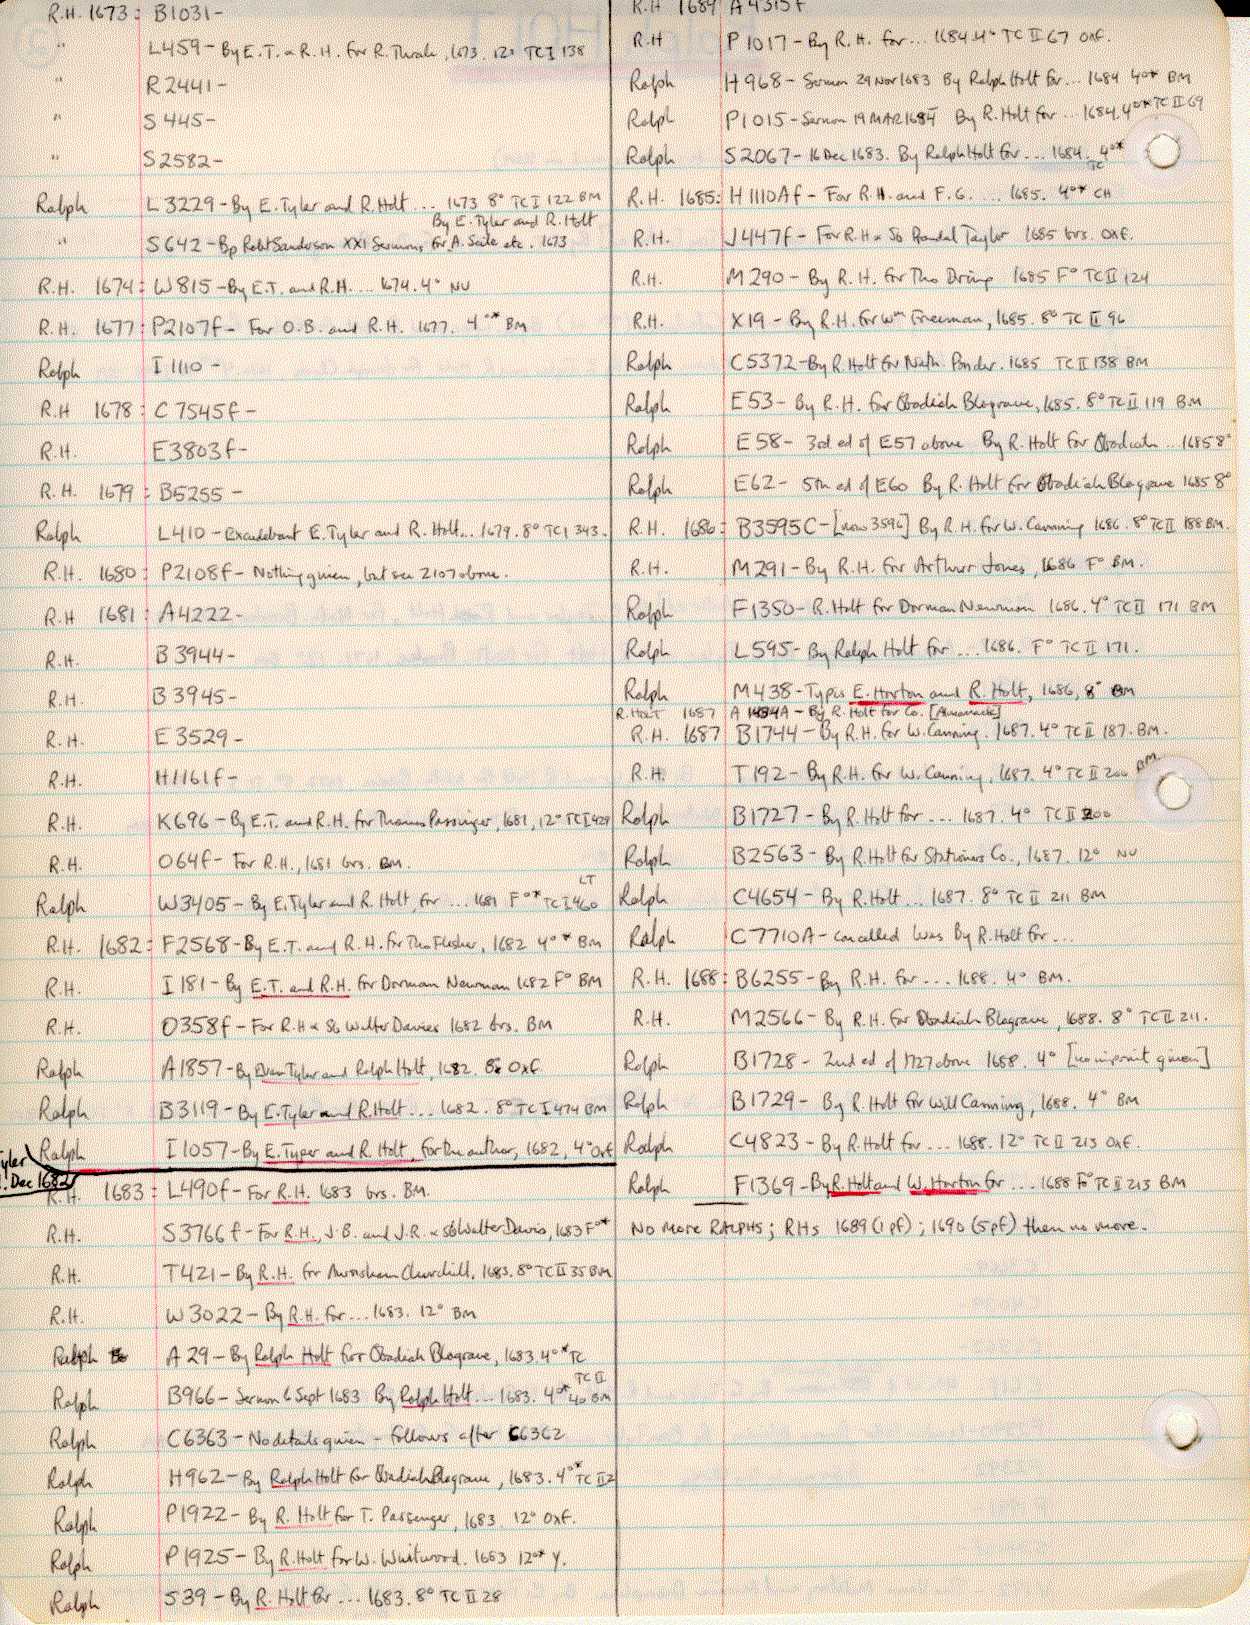 R.H. 1673: B1031-
" L459 - By E.T. & R.H. for R. Thrale, 1673. 12° TC I 138
" R2441-
" S445-
" S2582-
Ralph L3229 - By E. Tyler and R. Holt ... 1673 8° TC I 122 BM
By E. Tyler and R. Holt
" S642 - Bp Robt Sanderson XXI Sermons for A. Seile etc. 1673
R.H. 1674: W815 - By E.T. and R.H. ... 1674. 4° NU
R.H. 1677: P2107f - For O.B. and R.H. 1677. 4°* BM
Ralph I1110 -
R.H 1678: C7545f -
R.H. E3803f -
R.H. 1679: B5255 -
Ralph L410 - Excudebant E. Tyler and R. Holt... 1679. 8° TC I 343.
R.H. 1680: P2108f - Nothing given, but see 2107 above.
R.H 1681: A4222-
R.H. B3944-
R.H. B3945-
R.H. E3529-
R.H. H1161f-
R.H. K696 - By E.T. and R.H. for Thomas Passinger, 1681, 12° TC I 429
R.H. O64f - For R.H., 1681 brs. BM.
LT
Ralph W3405 - By E. Tyler and R. Holt, for ... 1681 F°* TC I 460
R.H. 1682: F2568 - By E.T. and R.H. for Tho Flesher, 1682 4°* BM
R.H. I181 - By E.T. and R.H. for Dorman Newman 1682 F° BM
R.H. O358f - For R.H & Sb Walter Davies 1682 brs. BM
Ralph A1857 - By Evan Tyler and Ralph Holt, 1682. 8° Oxf
Ralph B3119 - By E. Tyler and R. Holt ... 1682. 8° TC I 474 BM
Ralph I1057 - By E. Tyger and R. Holt, for the author, 1682, 4° Oxf
Tyler
Dec 1682
R.H. 1683: L490f - For R.H. 1683 brs. BM.
R.H. S3766f - For R.H., J.B. and J.R. & Sb Walter Davis, 1683 F°*
R.H. T421 - By R.H. for Awnsham Churchill, 1683. 8° TC II 35 BM
R.H. W3022 - By R.H. for ... 1683. 12° BM
Ralph A29 - By Ralph Holt for Obadiah Blagrave, 1683. 4°* TC
TC II
Ralph B966 - Sermon 6 Sept 1683 By Ralph Holt ... 1683. 4°* 40 BM
Ralph C6363 - No details given - follows after C6362
Ralph H962 - By Ralph Holt for Obadiah Blagrave, 1683. 4°* TC II 2
Ralph P1922 - By R. Holt for T. Passenger, 1683. 12° Oxf.
Ralph P1925 - By R. Holt for W. Whitwood. 1683 12°* Y.
Ralph S39 - By R. Holt for ... 1683. 8° TC II 28
R.H 1684 A4315f
R.H P1017 - By R.H. for ... 1684. 4° TC II 67 Oxf.
Ralph H968 - Sermon 29 Nov 1683 By Ralph Holt for ... 1684 4°* BM
Ralph P1015 - Sermon 19 MAR 1684 By R. Holt for ... 1684. 4°* TC II 69
Ralph S2067 - 16 Dec 1683. By Ralph Holt for ... 1684. 4°*
TC
R.H. 1685: H1110Af - For R.H. and F.G. ... 1685. 4°* CH
R.H. J447f - For R.H & Sb Randal Taylor 1685 brs. Oxf.
R.H. M290 - By R.H. for Tho Dring 1685 F° TC II 124
R.H. X19 - By R.H. for Wm Freeman, 1685. 8° TC II 96
Ralph C5372 - By R. Holt for Nath. Ponder. 1685 TC II 138 BM
Ralph E53 - By R.H. for Obadiah Blagrave, 1685. 8° TC II 119 BM
Ralph E58 - 3rd ed of E57 above By R. Holt for Obadiah ... 1685 8°
Ralph E62 - 5th ed of E60 By R. Holt for Obadiah Blagrave 1685 8°
R.H. 1686: B3595C - [now 3596] By R.H. for W. Canning 1686. 8° TC II 188 BM.
R.H. M291 - By R.H. for Arthur Jones, 1686 F° BM.
Ralph F1350 - R. Holt for Dorman Newman 1686. 4° TC II 171 BM
Ralph L595 - By Ralph Holt for ... 1686. F° TC II 171.
Ralph M438 - Typis E. Horton and R. Holt, 1686, 8° BM
R. HOLT 1687 A 1434A - By R. Holt for Co. [Almanack]
R.H. 1687 B1744 - By R.H. for W. Canning. 1687. 4° TC II 187. BM.
R.H. T192 - By R.H. for W. Canning, 1687. 4° TC II 200 BM
Ralph B1727 - By R. Holt for ... 1687. 4° TC II 200
Ralph B2563 - By R. Holt for Stationers Co., 1687. 12° NU
Ralph C4654 - By R. Holt ... 1687. 8° TC II 211 BM
Ralph C7710A - cancelled Was By R. Holt for ...
R.H. 1688: B6255 - By R.H. for ... 1688. 4° BM.
R.H. M2566 - By R.H. for Obadiah Blagrave, 1688. 8° TC II 211.
Ralph B1728 - 2nd ed of 1727 above 1688. 4° [no imprint given]
Ralph B1729 - By R. Holt for Will Canning, 1688. 4° BM
Ralph C4823 - By R. Holt for ... 1688. 12° TC II 213 Oxf.
Ralph F1369 - By R. Holt and W. Horton for ... 1688 F° TC II 213 BM
NO MORE RALPHS; RHs 1689 (1 pf); 1690 (5 pf) then no more.